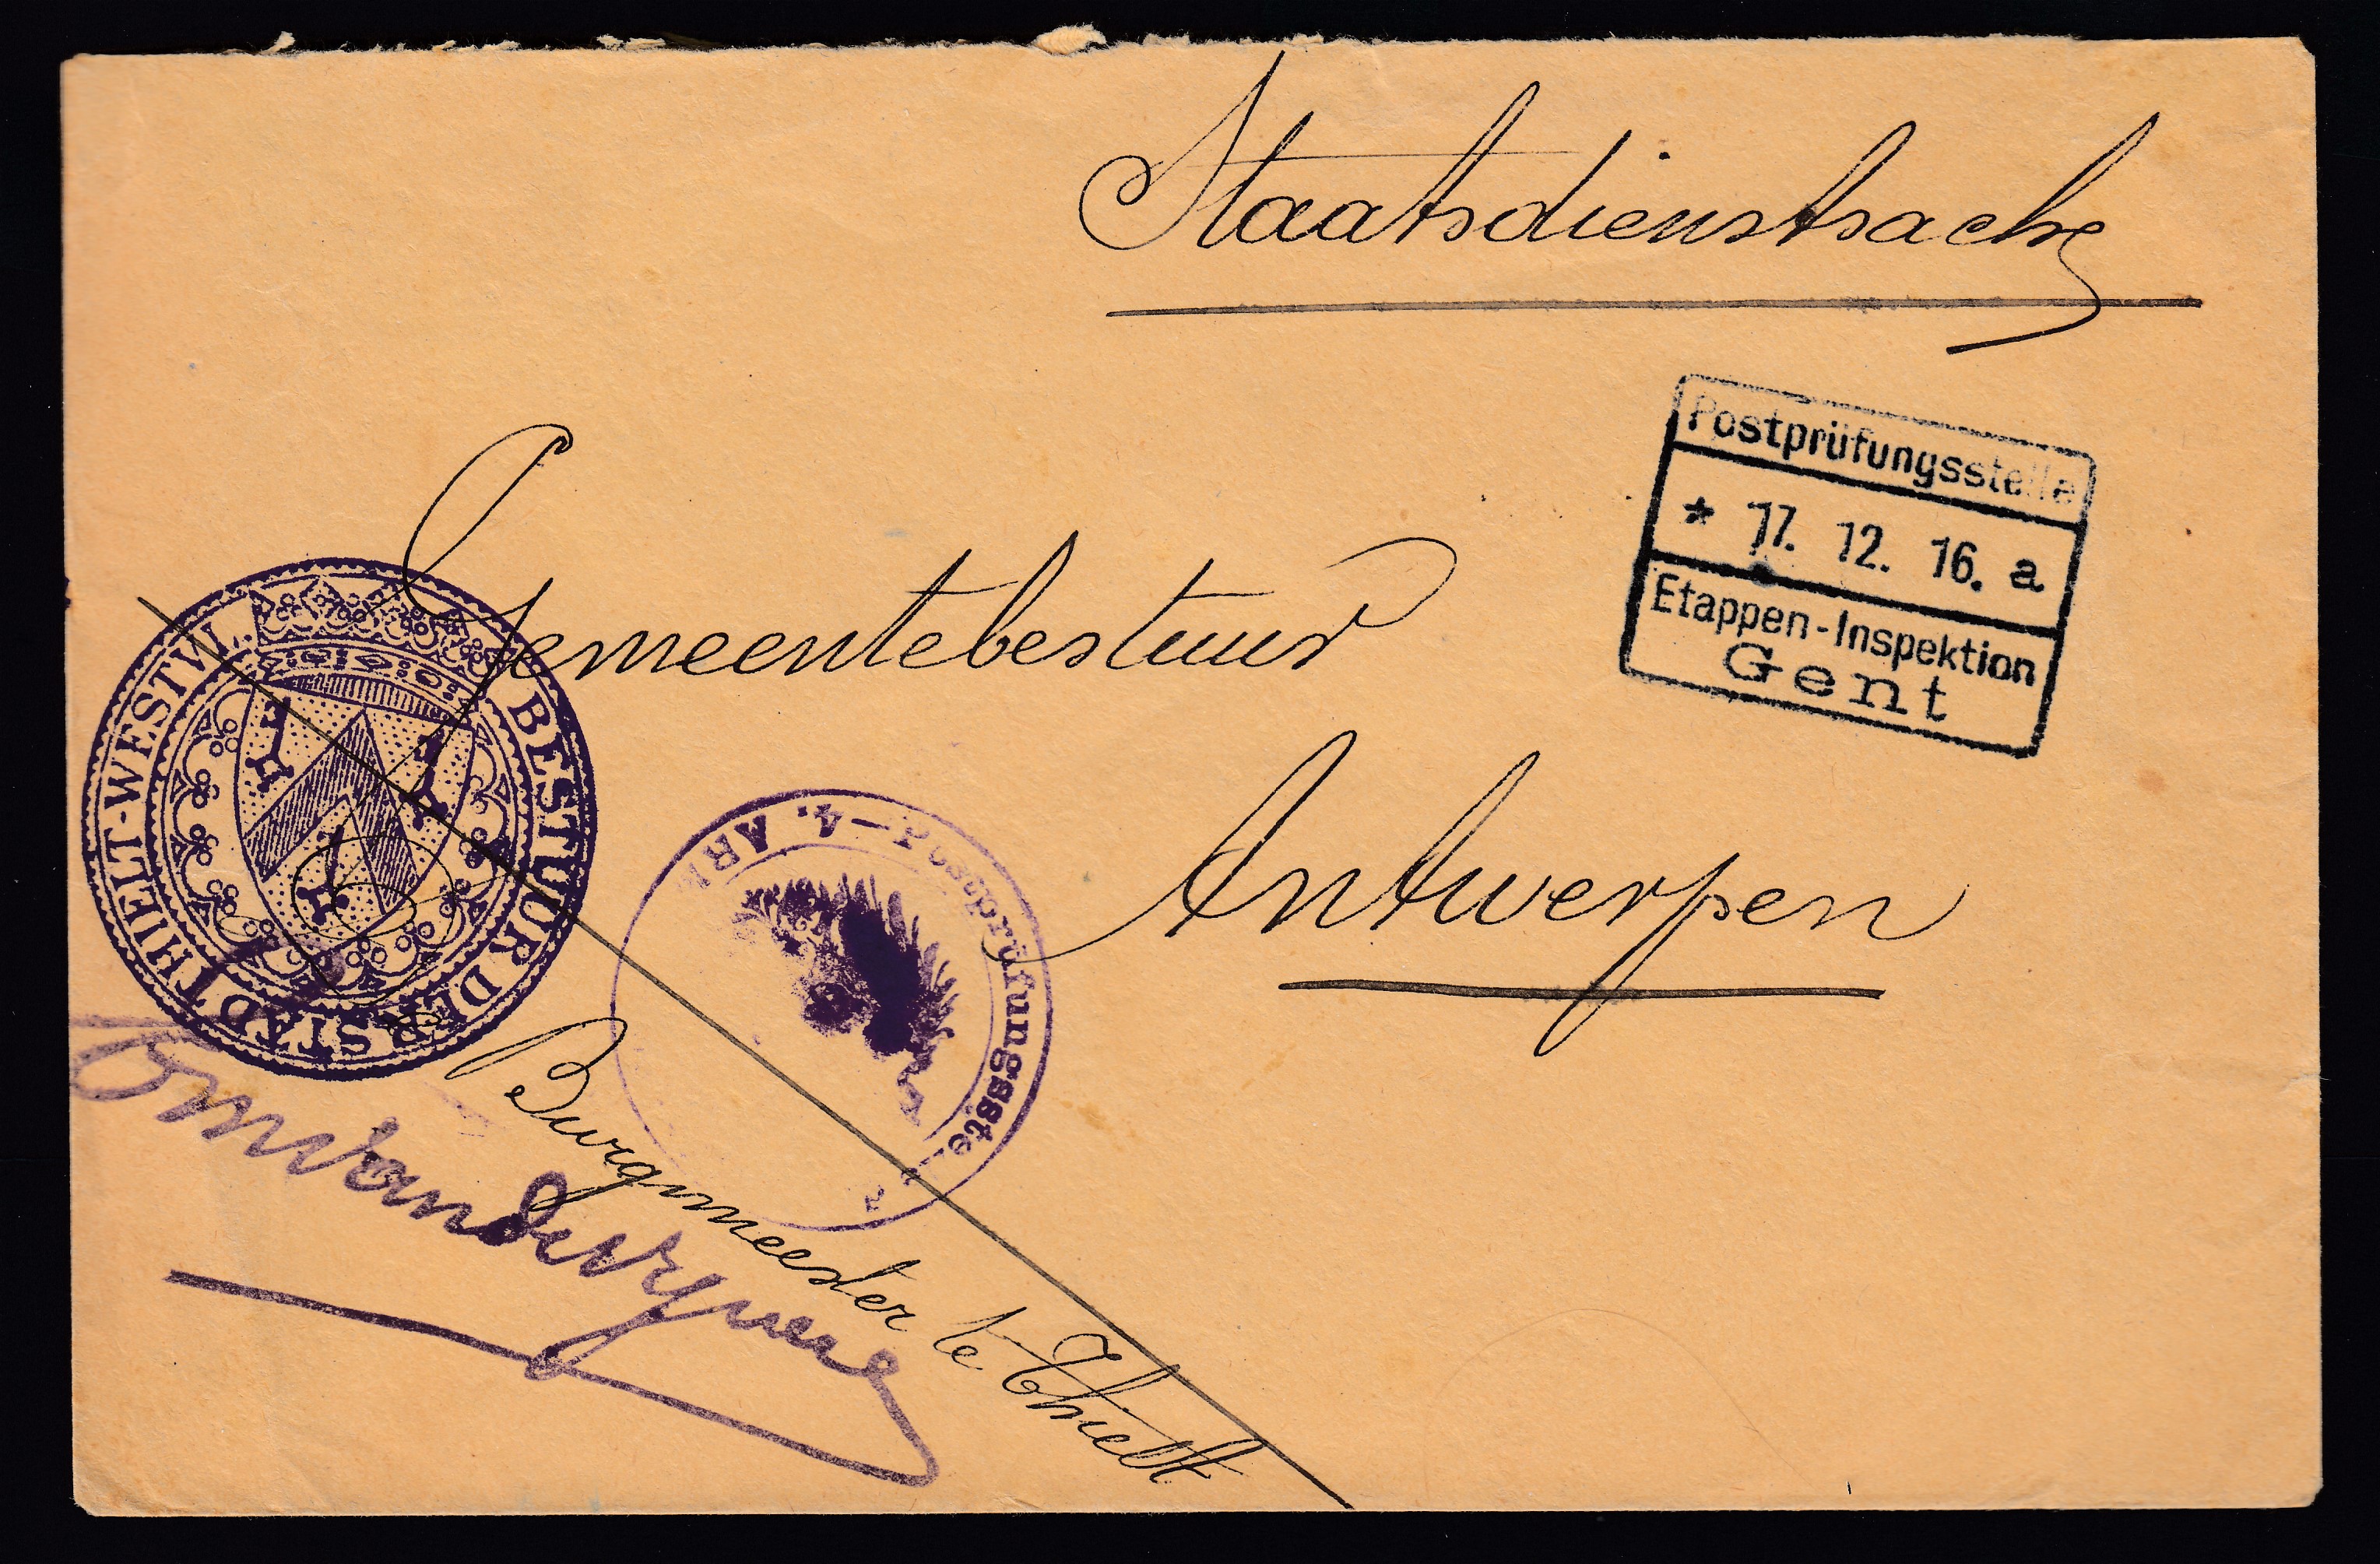 Staatsdienstsache
Postprüfungsstelle
* 17. 12. 16. a
Etappen-Inspektion
Gent
Gemeentebestuur
Antwerpen
BESTUUR DER STAD THIELT-WESTVL.
Postprüfungsste
4. AR
Burgmeester te Thielt